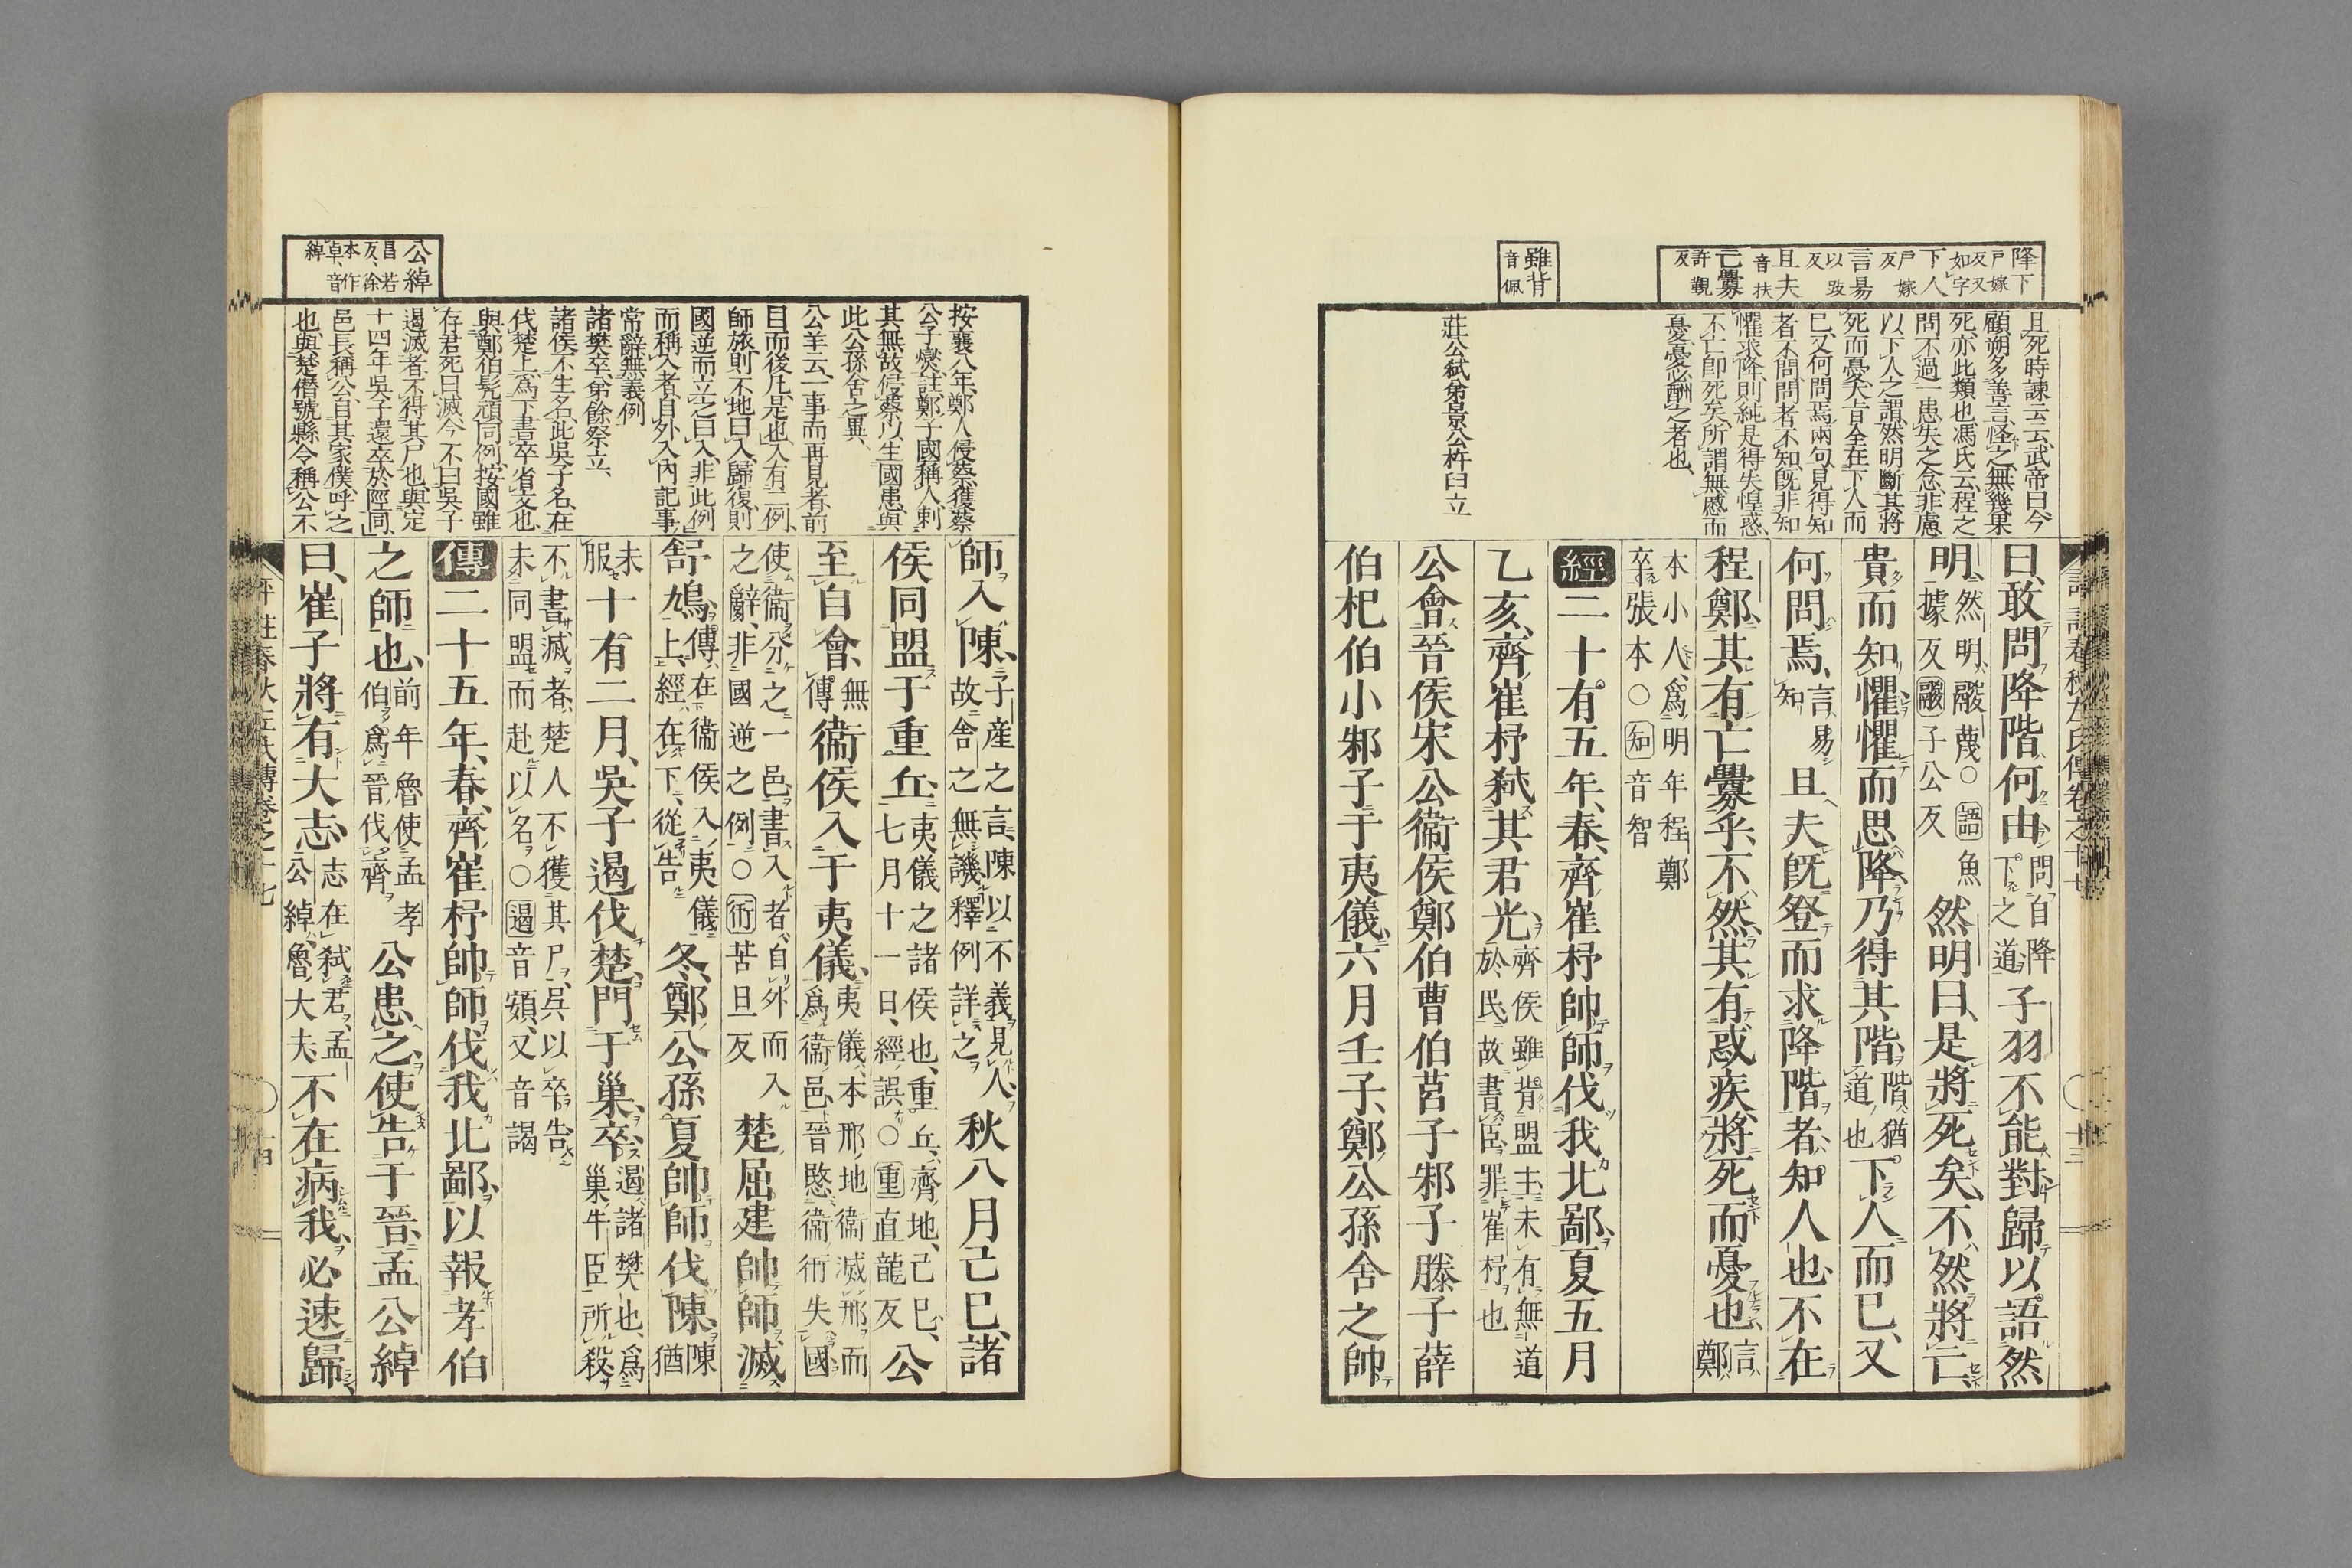 降下
戶嫁
反又
如字
下人
戶嫁
反
言易
以豉
反
且夫
音扶
亡釁
許觀
反
雖背
音佩
且死時諫云云、武帝曰、今
顧朔多善言、怪之、無幾果
死、亦此類也、馮氏云、程之
問不過一患失之念、非慮
以下人之謂、然明斷其將
死而憂、大旨全在下人而
已、又何問焉兩句、見得知
者不問、問者不知、旣非知
懼求降、則純是得失惶惑、
不亡卽死矣、所謂無慼而
憂、憂必酬之者也、
莊公弑、弟景公杵臼立
曰、敢問降階何由、問自降下之道子羽不能對、歸以語然
明、然明、鬷蔑○語魚據反鬷子公反然明曰、是將死矣、不然將亡、
貴而知懼、懼而思降、乃得其階、階猶道也下人而已、又
何問焉、言易知且夫旣登而求降階者、知人也、不在
程鄭、其有亡釁乎、不然、其有惑疾、將死而憂也、言鄭
本小人、爲明年程鄭卒張本○知音智
經二十有五年、春、齊崔杼帥師伐我北鄙、夏五月
乙亥、齊崔杼弑其君光、齊侯雖背盟主、未有無道於民、故書臣罪崔杼也
公會晉侯宋公衞侯鄭伯曹伯莒子邾子滕子薛
伯杞伯小邾子于夷儀、六月壬子、鄭公孫舍之帥
公綽
昌若
反、徐
本作
卓、音
綽
按襄八年、鄭人侵蔡、獲蔡
公子燮、註、鄭子國稱人、刺
其無故侵蔡以生國患、與
此公孫舍之異、
公羊云、一事而再見者、前
目而後凡、是也、入有二例、
師旅則不地曰入、歸復則
國逆而立之曰入、非此例
而稱入者、自外入內、記事
常辭無義例
諸樊卒、弟餘祭立、
諸侯不生名、此吳子名、在
伐楚上、爲下書卒省文也
與鄭伯髡頑同例、按國雖
存君死曰滅、今不曰吳子
遏滅者、不得其尸也、與定
十四年吳子還卒於陘同、
邑長稱公、自其家僕呼之
也、與楚僭號縣令稱公不
師入陳、子產之言、陳以不義見人、故舍之無譏、釋例詳之秋八月己巳、諸
侯同盟于重丘、夷儀之諸侯也、重丘、齊地、己巳、七月十一日、經誤○重直龍反公
至自會、無傳衞侯入于夷儀、夷儀、本邢地、衞滅邢而爲衞邑、晉愍衞衎失國
使衞分之一邑、書入者、自外而入之辭、非國逆之例○衎苦旦反楚屈建帥師滅
舒鳩、傳在衞侯入夷儀上、經在下、從告冬、鄭公孫夏帥師伐陳、陳猶
未服十有二月、吳子遏伐楚、門于巢、卒、遏諸樊也、爲巢牛臣所殺
不書滅者、楚人不獲其尸、吳以卒告、未同盟而赴以名○遏音頞、又音謁
傳二十五年、春、齊崔杼帥師伐我北鄙、以報孝伯
之師也、前年魯使孟孝伯爲晉伐齊公患之、使告于晉、孟公綽
曰、崔子將有大志、志在弑君、孟公綽、魯大夫、不在病我、必速歸